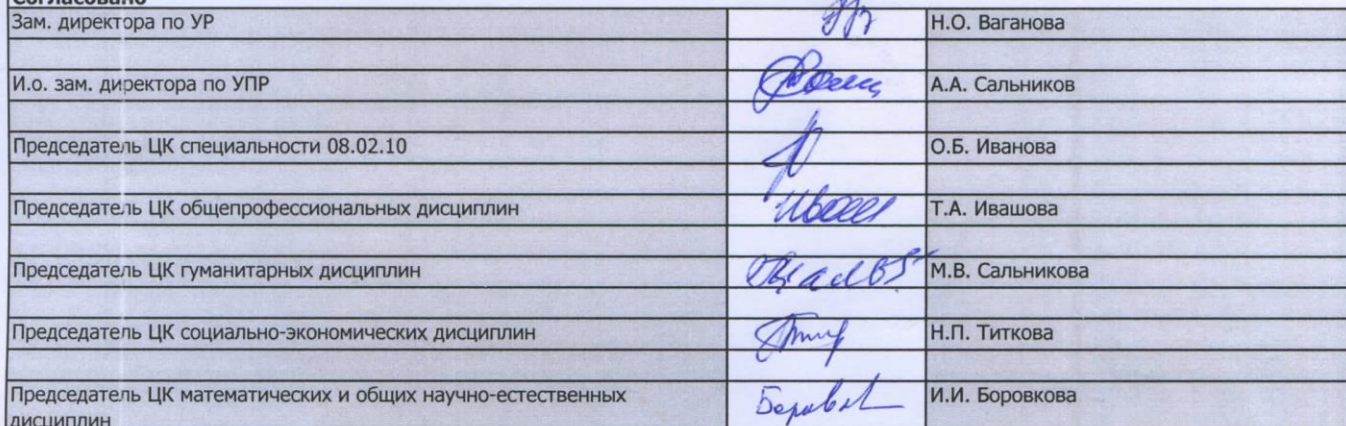 Согласовано
Зам. директора по УР Н.О. Ваганова
И.о. зам. директора по УПР А.А. Сальников
Председатель ЦК специальности 08.02.10 О.Б. Иванова
Председатель ЦК общепрофессиональных дисциплин Т.А. Ивашова
Председатель ЦК гуманитарных дисциплин М.В. Сальникова
Председатель ЦК социально-экономических дисциплин Н.П. Титкова
Председатель ЦК математических и общих научно-естественных И.И. Боровкова
дисциплин